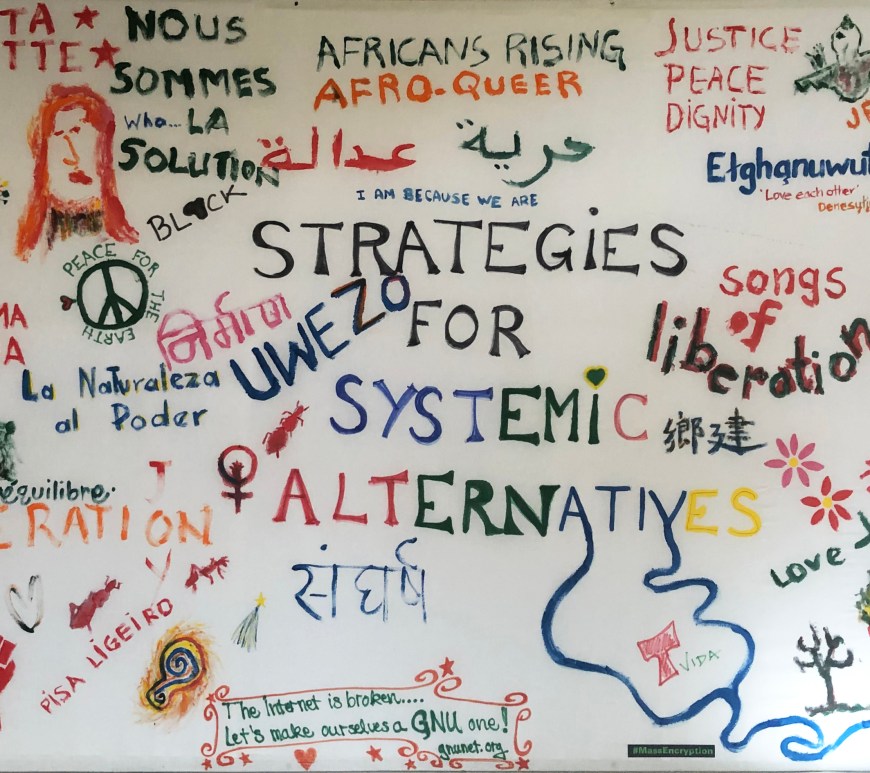 TA
TTE
NOUS
SOMMES
Who...LA
SOLUTION
AFRICANS RISING
AFRO-QUEER
JUSTICE
PEACE
DIGNITY
عدالة
حرية
Etghanuwut
'Love each other'
I AM BECAUSE WE ARE
BLACK
PEACE FOR THE EARTH
STRATEGIES
FOR
SYSTEMIC
ALTERNATIVES
songs
of
liberation
निर्माण
UWEZO
MA
A
La Naturaleza
al Poder
鄉建
équilibre
ERATION
J
Y
संघर्ष
LOVE
PISA LIGEIRO
VIDA
The Internet is broken....
Let's make ourselves a GNU one!
gnunet.org
#MassEncryption